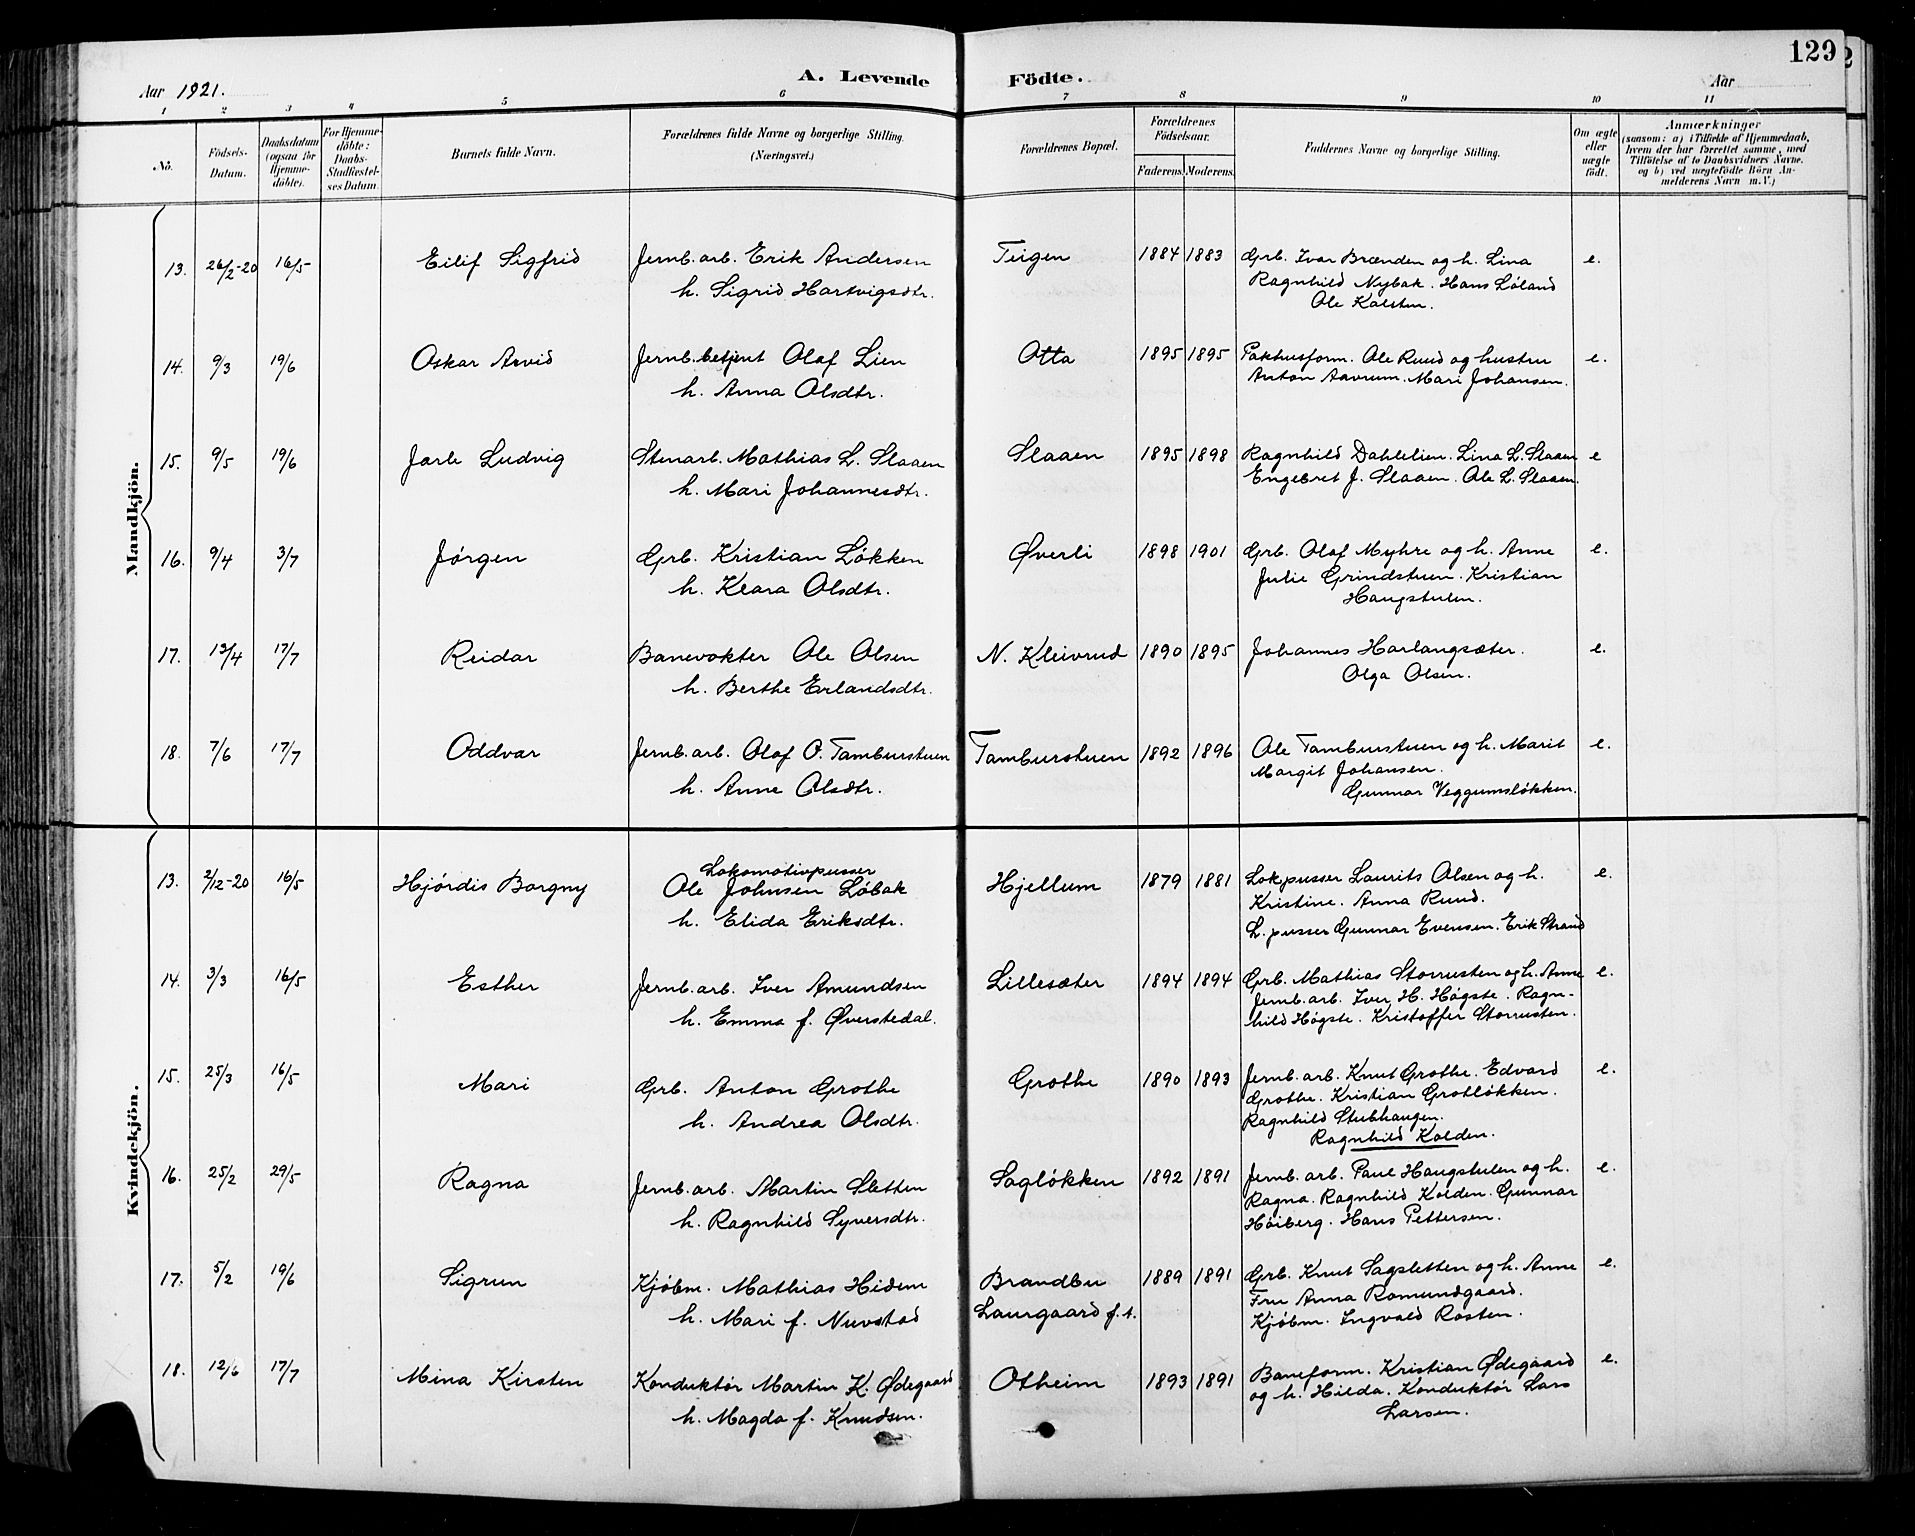 129
2
A. Levende Födte.
Aar 1921.
Aar
1 2 3 4 5 6 7 8 9 10 11
No.
Födsels-Datum.
Daabsdatum (ogsaa for Hjemme-döbte).
For Hjemme-döbte: Daabs-Stadfæstel-ses Datum.
Barnets fulde Navn.
Forældrenes fulde Navne og borgerlige Stilling. (Næringsvei.)
Forældrenes Bopæl.
Forældrenes Födselsaar.
Faderens. Moderens.
Faddernes Navne og borgerlige Stilling.
Om ægte eller uægte födt.
Anmærkninger
(saasom: a) i Tilfælde af Hjemmedaab, hvem der har forrettet samme, med Tilföielse af to Daabsvidners Navne, og b) ved uægtefödte Börn An-melderens Navn m.V.)
Mandkjön.
13. 26/2-20 16/5 Eilif Sigfrid Jernb. arb. Erik Andersen Teigen 1884 1883 Grb. Ivar Brænden og h. Lina e.
h. Sigrid Hartvigsdtr. Ragnhild Nybak. Hans Løland
Ole Kolsten.
14. 9/3 19/6 Oskar Arvid Jernb. betjent Olaf Lien Otta 1895 1895 Pakhusform. Ole Ruud og hustru e.
h. Anna Olsdtr. Anton Aavrum. Mari Johansen.
15. 9/5 19/6 Jarle Ludvig Stenarb. Mathias L. Slaaen Slaaen 1895 1898 Ragnhild Dahlelien. Lina L. Slaaen e
h. Mari Johannesdtr. Engebret J. Slaaen. Ole L. Slaaen.
16. 9/4 3/7 Jørgen Grb. Kristian Løkken Øverli 1898 1901 Grb. Olaf Myhre og h. Anne e.
h. Klara Olsdtr. Julie Grindstuen. Kristian
Haugstulen.
17. 13/4 17/7 Reidar Banevokter Ole Olsen N. Kleivrud 1890 1895 Johannes Harlangsæter. e.
h. Berthe Erlandsdtr. Olga Olsen.
18. 7/6 17/7 Oddvar Jernb. arb. Olaf O. Tamburstuen Tamburstuen 1892 1896 Ole Tamburstuen og h. Marit e.
h. Anne Olsdtr. Margit Johansen.
Gunnar Veggumsløkken.
Kvindekjön.
13. 2/12-20 16/5 Hjørdis Borgny Lokomotivpusser
Ole Johnsen Løbak Hjellum 1879 1881 Lokpusser Laurits Olsen og h. e.
h. Elida Eriksdtr. Kristine. Anna Ruud.
L. pusser Gunnar Evensen. Erik Strand
14. 3/3 16/5 Esther Jernb. arb. Iver Amundsen Lillesæter 1894 1894 Grb. Mathias Storrusten og h. Anne e.
h. Emma f. Øverstedal. Jernb. arb. Iver H. Høgste. Ragn-
hild Høgste. Kristoffer Storrusten.
15. 25/3 16/5 Mari Grb. Anton Grothe Grothe 1890 1893 Jernb. arb. Knut Grothe. Edvard e.
h. Andrea Olsdtr. Grothe. Kristian Grotløkken.
Ragnhild Stubhaugen.
Ragnhild Kolden.
16. 25/2 29/5 Ragna Jernb. arb. Martin Sletten Sagløkken 1892 1891 Jernb. arb. Paul Haugstulen og h. e.
h. Ragnhild Syversdtr. Ragna. Ragnhild Kolden. Gunnar
Høiberg. Hans Pettersen.
17. 5/2 19/6 Sigrun Kjøbm. Mathias Hidem Brandbu 1889 1891 Grb. Knut Sagsletten og h. Anne e.
h. Mari f. Nuvstad Laurgaard f.t. Fru Anna Romundgaard.
Kjøbm. Ingvald Rosten.
18. 12/6 17/7 Mina Kirsten Konduktør Martin K. Ødegaard Otheim 1893 1891 Baneform. Kristian Ødegaard e.
h. Magda f. Knudsen. og h. Hilda. Konduktør Lars
Larsen.